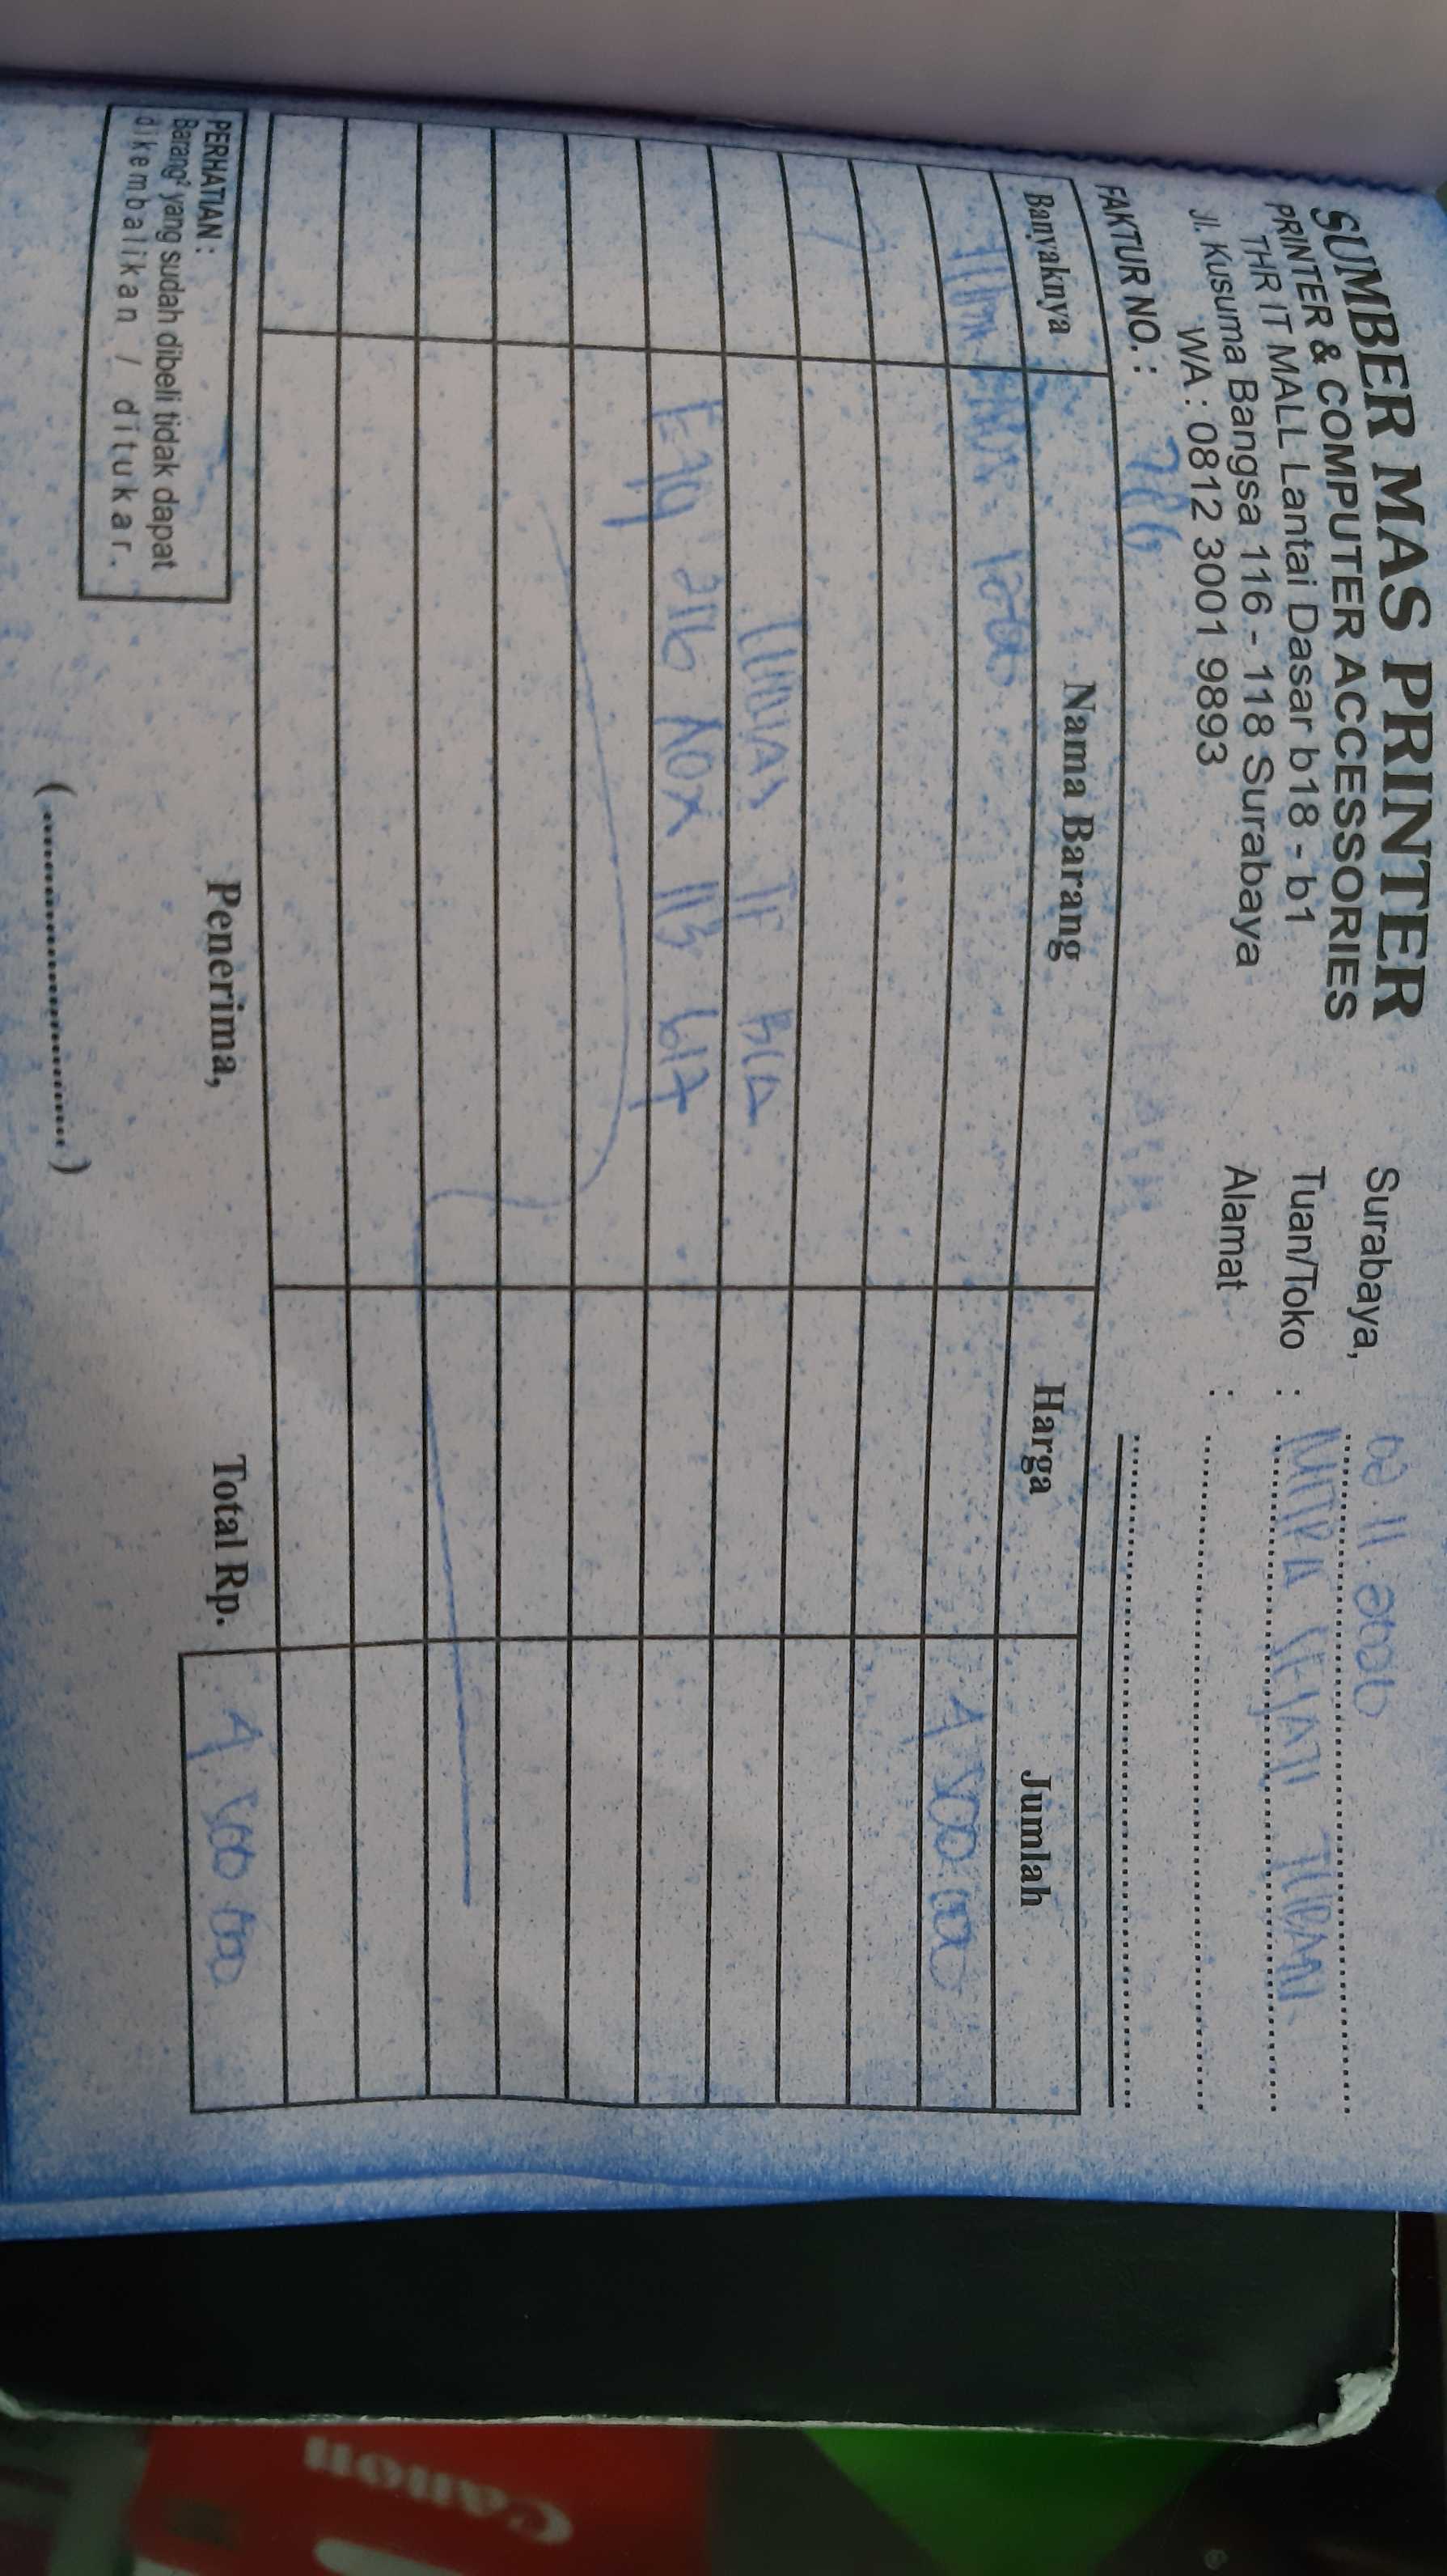 SUMBER MAS PRINTER
PRINTER & COMPUTER ACCESSORIES
THR IT MALL Lantai Dasar b18 - b1
Jl. Kusuma Bangsa 116 - 118 Surabaya
WA : 0812 3001 9893
Surabaya,
Tuan/Toko :
Alamat :
FAKTUR NO. :
Banyaknya Nama Barang Harga Jumlah
4 500 000
LUNAS TF BCA
PERHATIAN :
Barang² yang sudah dibeli tidak dapat
dikembalikan / ditukar.
Penerima,
Total Rp. 4 500 000
(........................)
Canon